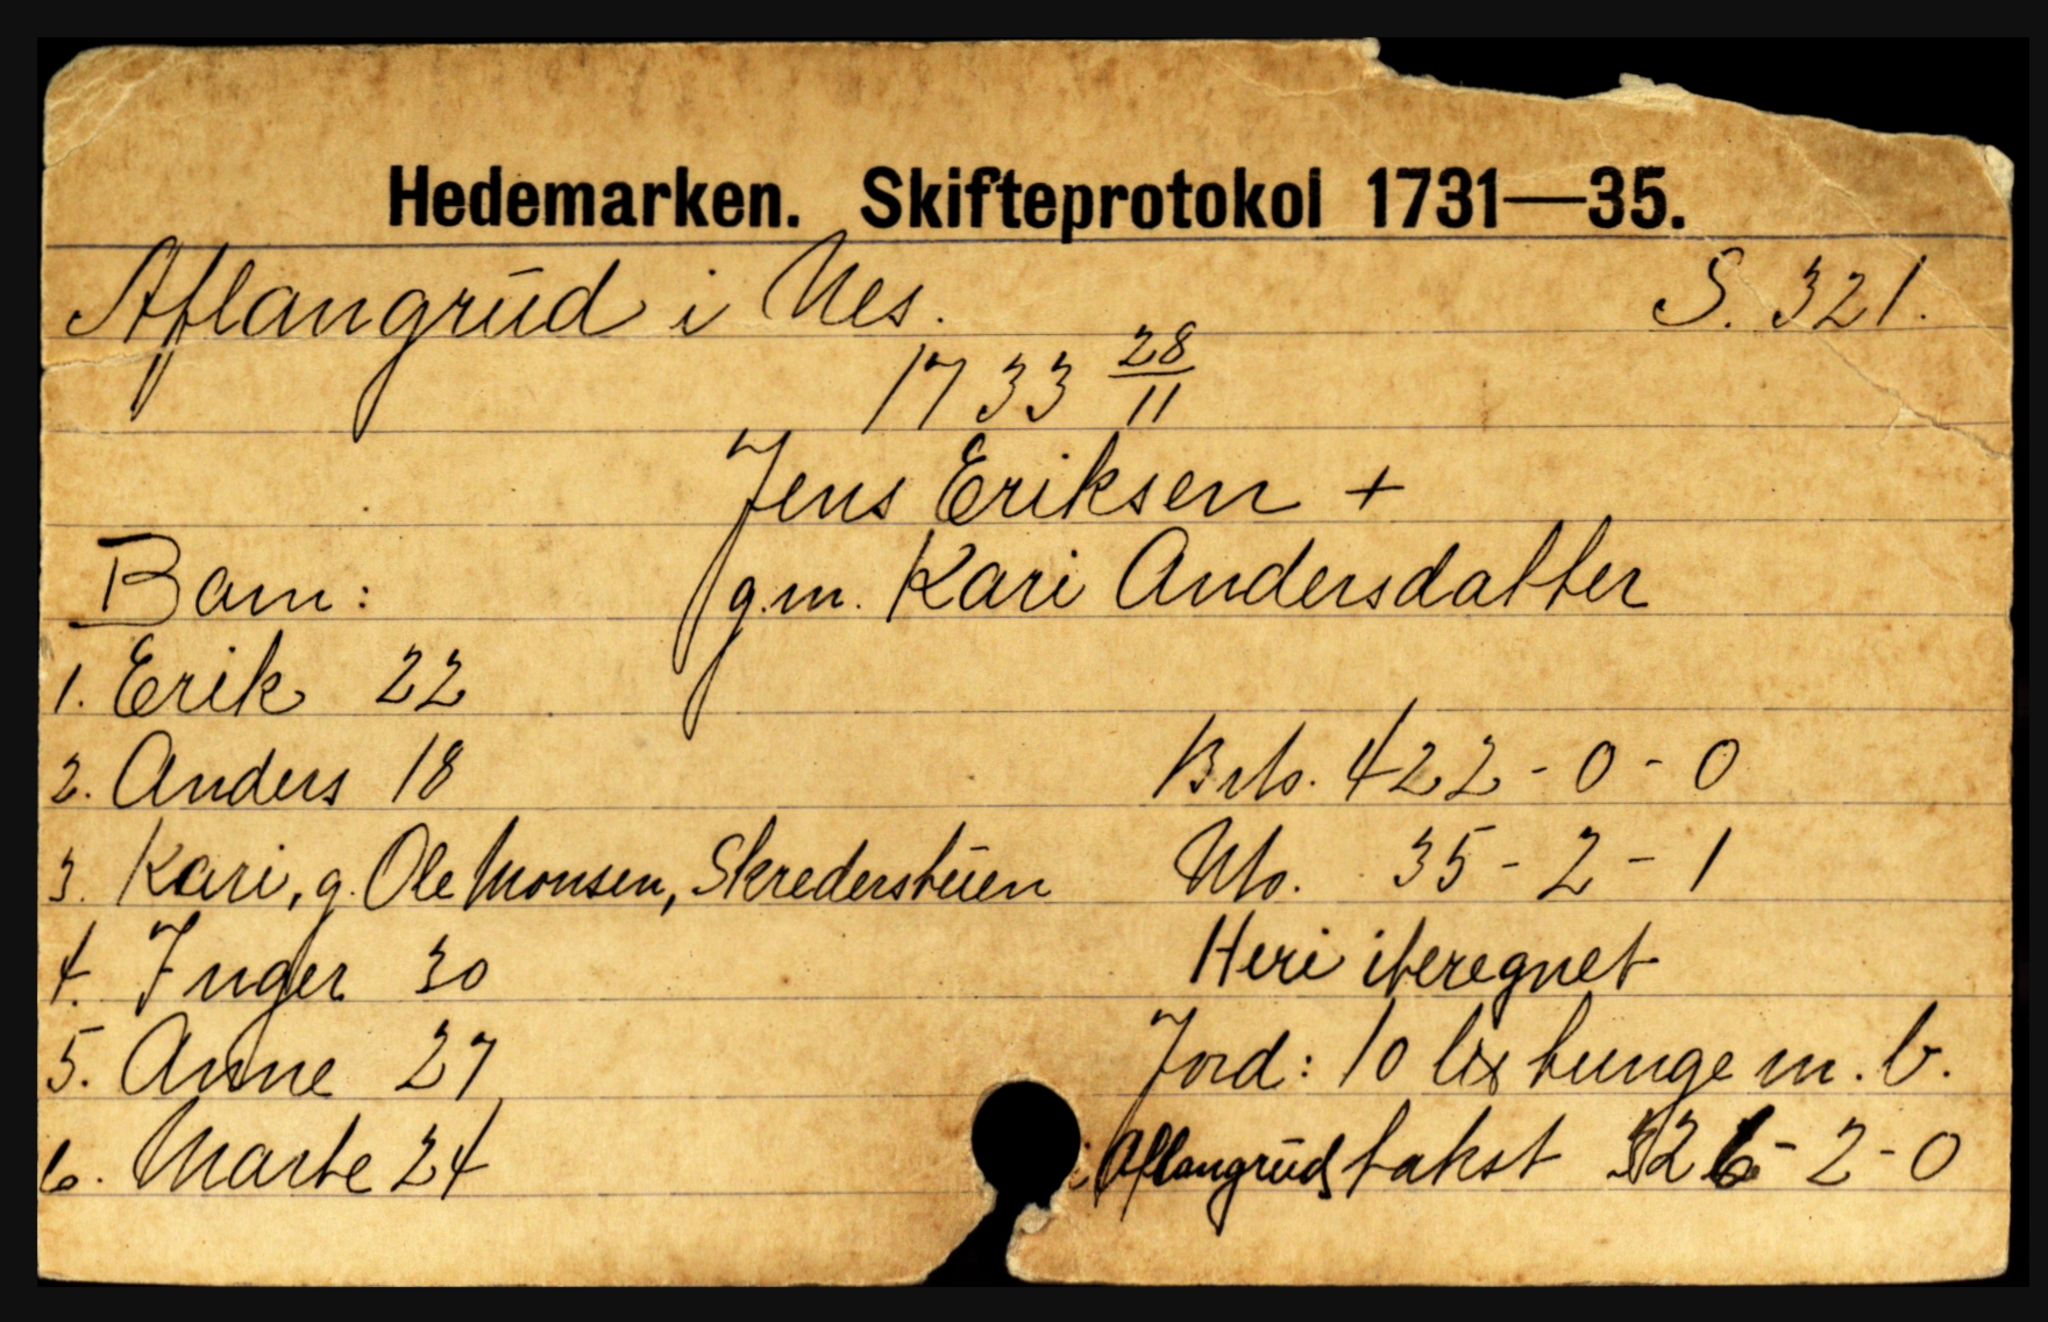 Hedemarken. Skifteprotokol 1731—35.
Aflangrud i Nes. S. 321.
1733 28/11
Jens Eriksen +
g.m. Kari Andersdatter
Barn:
1. Erik 22
2. Anders 18
3. Kari, g. Ole Monsen, Skrederstuen
4. Inger 30
5. Anne 27
6. Marte 24
Brto. 422 - 0 - 0
Nto. 35 - 2 - 1
Heri iberegnet
Jord: 10 lix tunge m. b.
i Aflangrud, takst 326 - 2 - 0